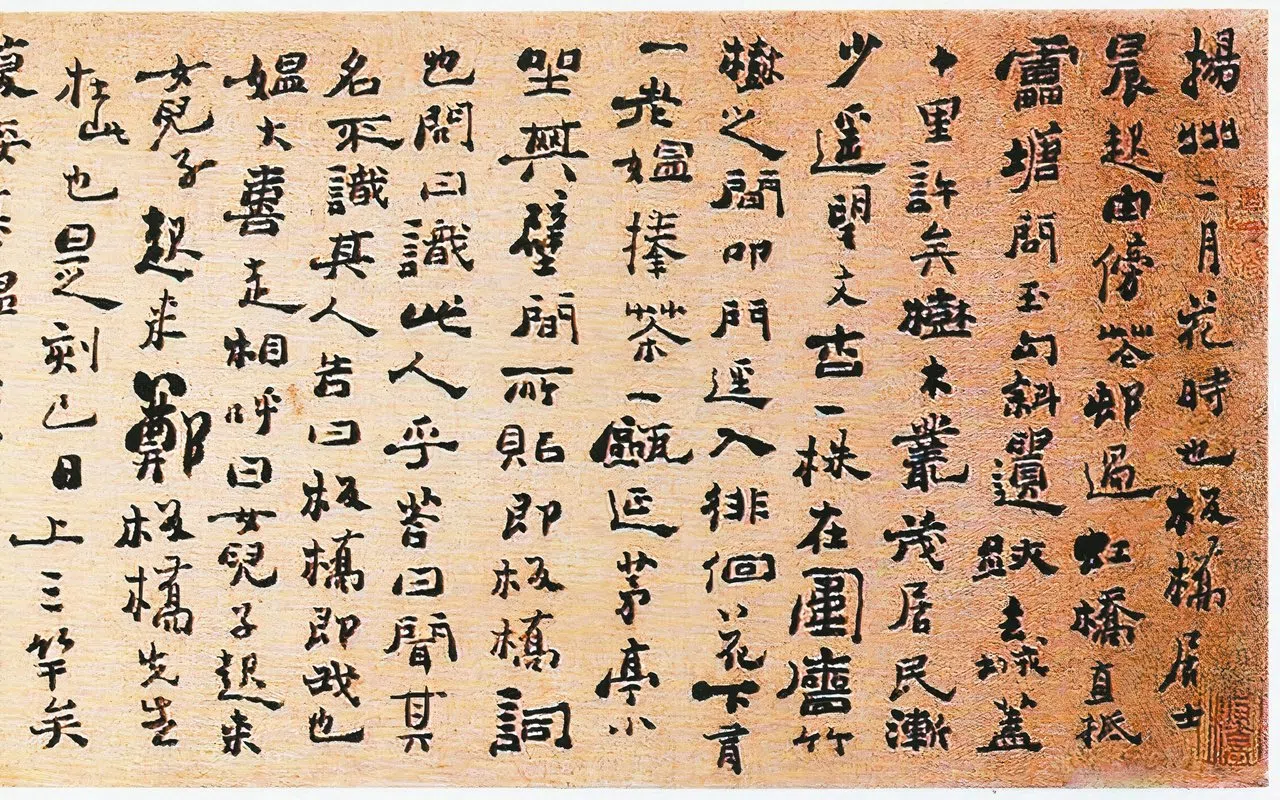 揚州二月花時也板橋居士
晨起由傍花邨過虹橋直抵
雷塘問玉勾斜遺跡去城蓋
十里許矣樹木叢茂居民漸
少遥望文杏一株在圍墻竹
樹之間叩門逕入徘徊花下有
一老媪捧茶一甌延茅亭小
坐其壁間所貼即板橋詞
也問曰識此人乎答曰聞其
名不識其人告曰板橋即我也
媪大喜走相呼曰女兒子起来
女兒子起来鄭板橋先生
在此也是刻已日上三竿矣